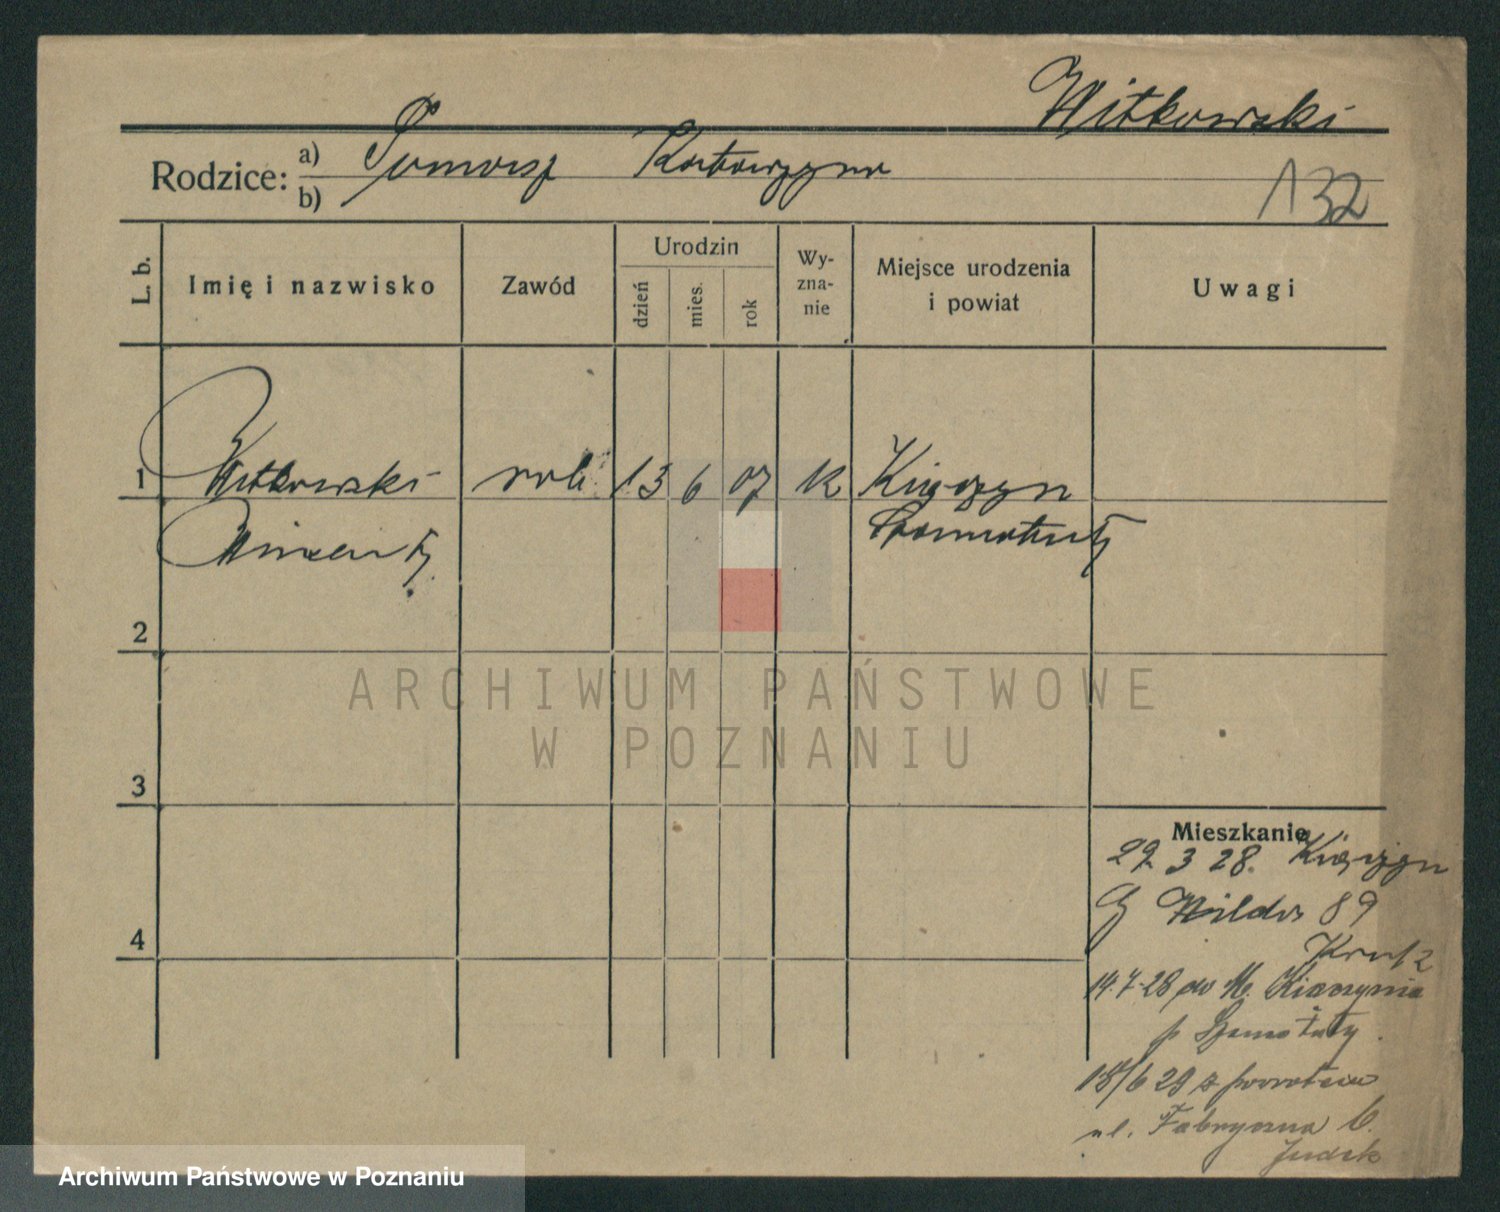 Witkowski
Rodzice: a) Tomasz Katarzyna
b)
132
L. b.
Imię i nazwisko
Zawód
Urodzin
dzień
mies.
rok
Wy-
zna-
nie
Miejsce urodzenia
i powiat
Uwagi
1 Witkowski rob 13 6 07 k Kiączyn
Wincenty Szamotuły
2
3
4
Mieszkanie
29 3 28. Kiączyn
G Wilda 89
14.7.28 do M. Kiączynia
p Szamotuły
18/6 29 z powrotem
ul. Fabryczna
ARCHIWUM PAŃSTWOWE
W POZNANIU
Archiwum Państwowe w Poznaniu